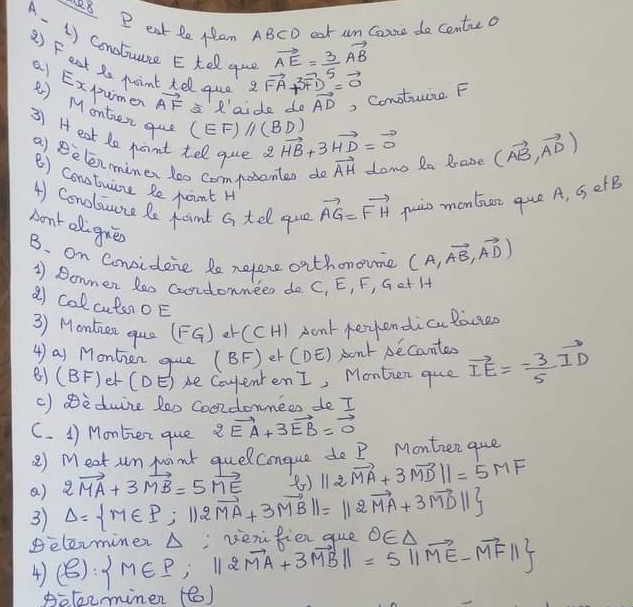 P est le plan ABCD est un Carré de centre O
A - 1) Construire E tel que AE→ = 3/5 AB→
2) F est le point tel que 2FA→ + 3FD→ = 0→
a) Exprimer AF→ à l'aide de AD→, Construire F
b) Montrer que (EF) // (BD)
3) H est le point tel que 2HB→ + 3HD→ = 0→
a) Déterminer les composantes de AH→ dans la base (AB→, AD→)
b) Construire le point H
4) Construire le point G tel que AG→ = FH→ puis montrer que A, G et B
sont alignés
B - On Considère le repere orthonormé (A, AB→, AD→)
1) Donner les Coordonnées de C, E, F, G et H
2) Calculer OE
3) Montrer que (FG) et (CH) sont perpendiculaires
4) a) Montrer que (BF) et (DE) sont sécantes
b) (BF) et (DE) se coupent en I, Montrer que IE→ = -3/5 ID→
c) Déduire les Coordonnées de I
C - 1) Montrer que 2EA→ + 3EB→ = 0→
2) M est un point quelconque de P Montrer que
a) 2MA→ + 3MB→ = 5ME→ b) ||2MA→ + 3MD→|| = 5MF
3) Δ = {M∈P ; ||2MA→ + 3MB→|| = ||2MA→ + 3MD→||}
Déterminer Δ ; vérifier que O∈Δ
4) (C) : {M∈P ; ||2MA→ + 3MB→|| = 5||ME→ - MF→||}
Déterminer (C)